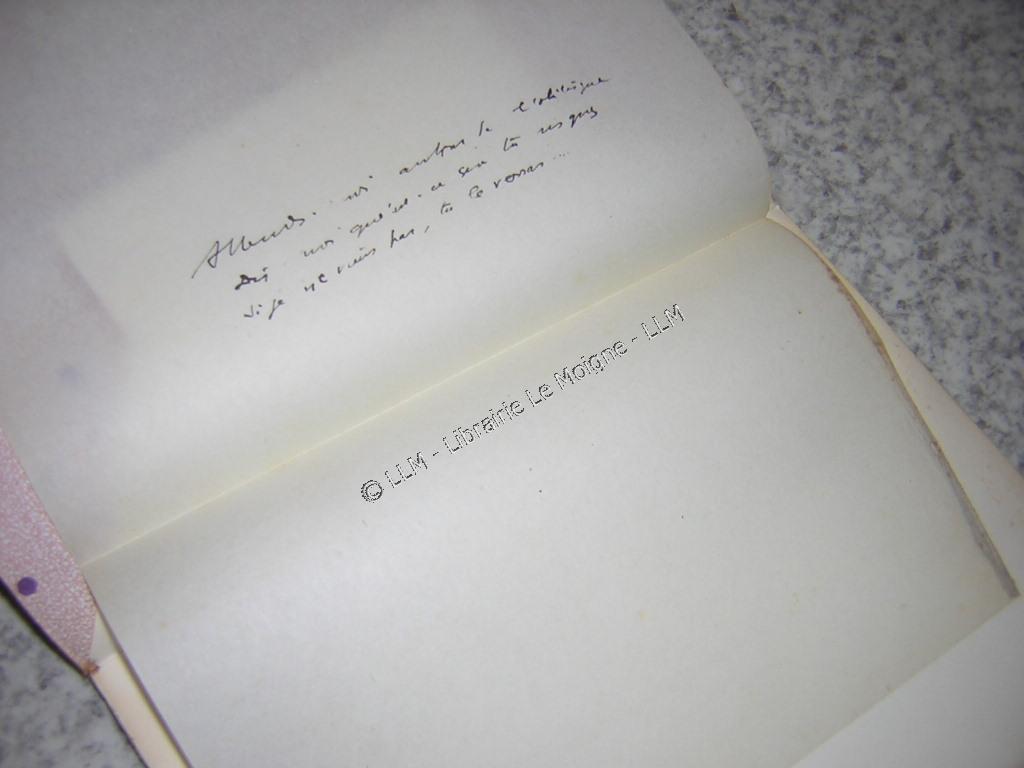 Attends-moi au bas de l'obélisque
Dis-moi qu'est-ce que tu risques
Si je ne viens pas, tu le verras...
© LLM - Librairie Le Moigne - LLM